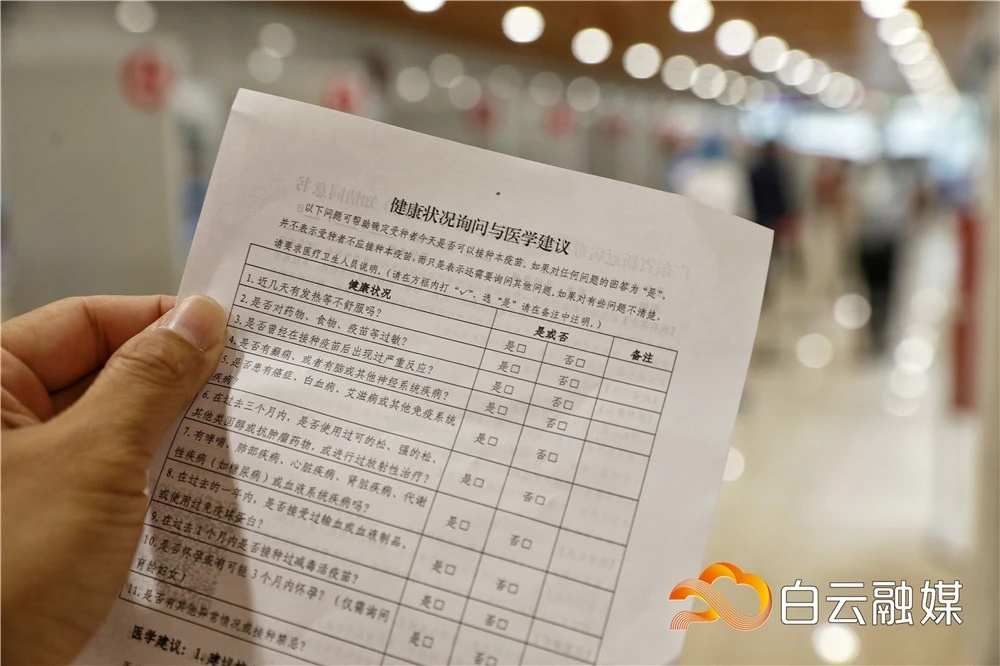 健康状况询问与医学建议
以下问题可帮助确定受种者今天是否可以接种本疫苗。如果对任何问题的回答为“是”，
并不表示受种者不应接种本疫苗，而只是表示还需要询问其他问题。如果对有些问题不清楚，
请要求医疗卫生人员说明。（请在方框内打“√”，选“是”请在备注中注明。）
健康状况 是或否 备注
1.近几天有发热等不舒服吗？ 是□ 否□
2.是否对药物、食物、疫苗等过敏？ 是□ 否□
3.是否曾经在接种疫苗后出现过严重反应？ 是□ 否□
4.是否有癫痫、或者有脑或其他神经系统疾病？ 是□ 否□
5.是否患有癌症、白血病、艾滋病或其他免疫系统
疾病？ 是□ 否□
6.在过去三个月内，是否使用过可的松、强的松、
其他类固醇或抗肿瘤药物，或进行过放射性治疗？ 是□ 否□
7.有哮喘、肺部疾病、心脏疾病、肾脏疾病、代谢
性疾病（如糖尿病）或血液系统疾病吗？ 是□ 否□
8.在过去的一年内，是否接受过输血或血液制品、
或使用过免疫球蛋白？ 是□ 否□
9.在过去1个月内是否接种过减毒活疫苗？ 是□ 否□
10.是否怀孕或有可能3个月内怀孕？（仅需询问
育龄妇女） 是□ 否□
11.是否有其他异常情况或接种禁忌？
医学建议：1.建议
白云融媒